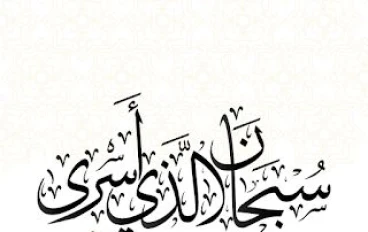 سُبْحَانَ الَّذِي أَسْرَى